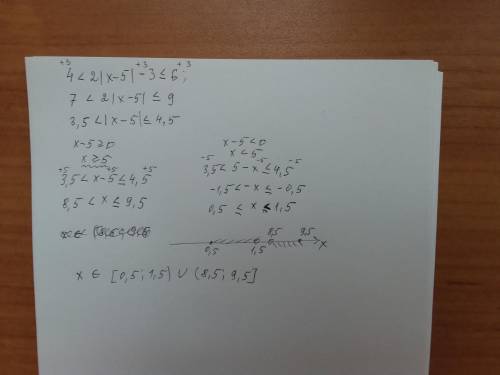 +3 +3 +3
4 < 2|x-5| -3 ≤ 6;
7 < 2|x-5| ≤ 9
3,5 < |x-5| ≤ 4,5
x-5 ≥ 0
x ≥ 5
+5 +5 +5
3,5 < x-5 ≤ 4,5
8,5 < x ≤ 9,5
x-5 < 0
x < 5
-5 -5 -5
3,5 < 5-x ≤ 4,5
-1,5 < -x ≤ -0,5
0,5 ≤ x < 1,5
0,5 1,5 8,5 9,5 x
x ∈ [0,5; 1,5) ∪ (8,5; 9,5]